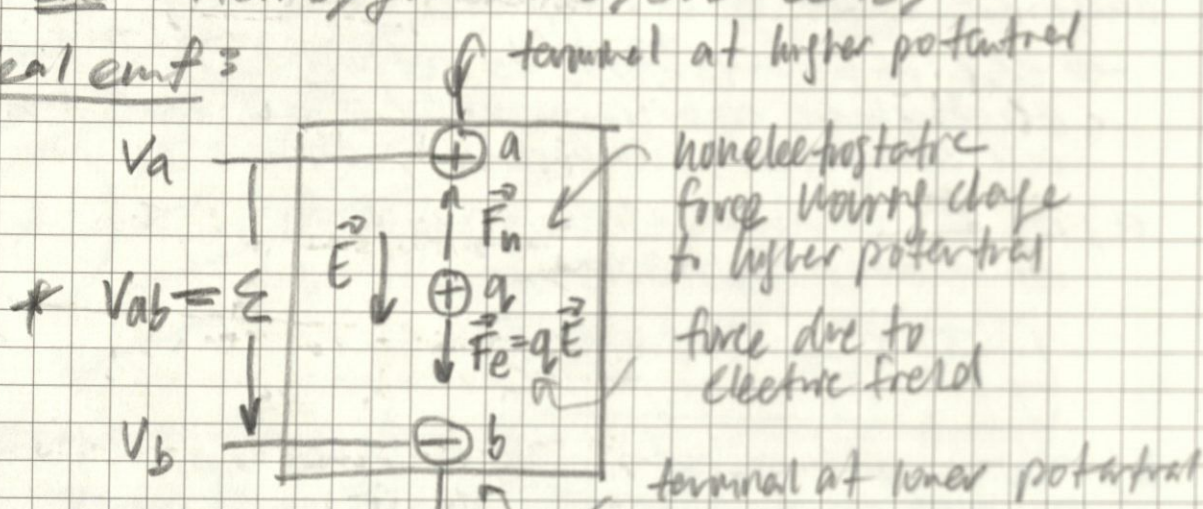 eal emf:
terminal at higher potential
Va
+ a
nonelectrostatic
force moving charge
to higher potential
E⃗
F⃗n
* Vab = ε
+ q
F⃗e = qE⃗
force due to
electric field
Vb
− b
terminal at lower potential